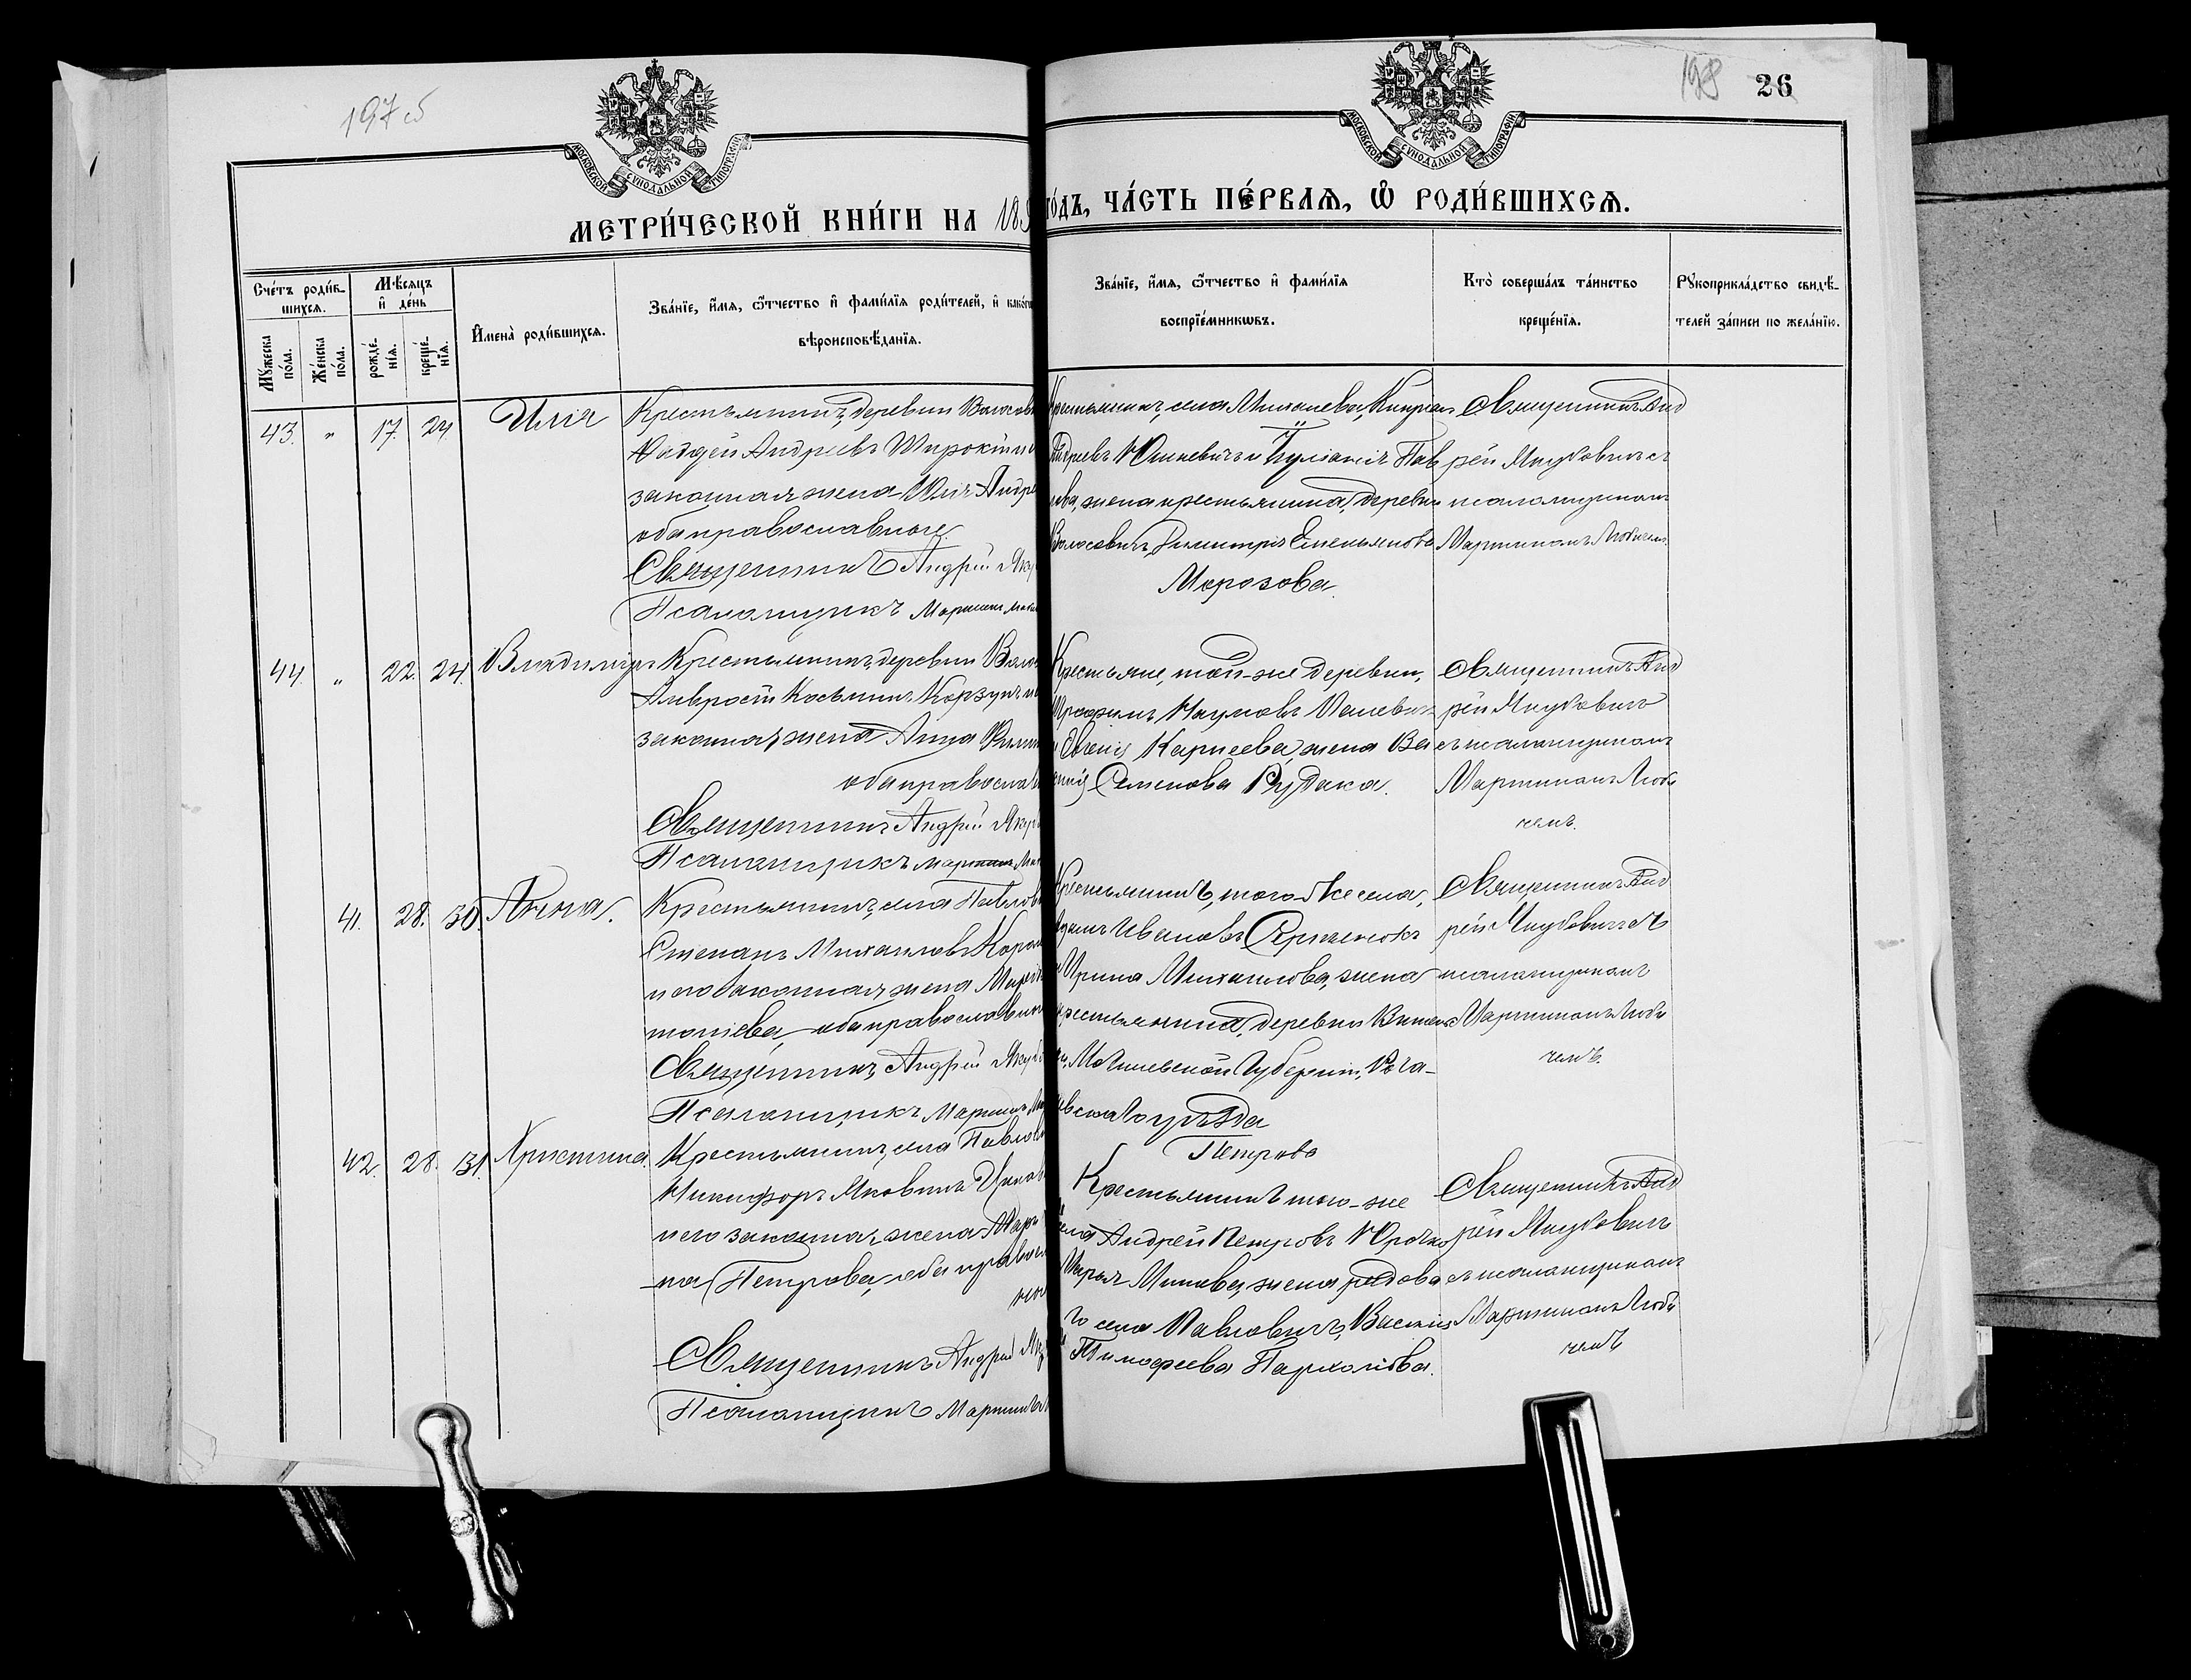 197 об
198 26
МОСКОВСКОЙ СѴНОДАЛЬНОЙ ТИПОГРАФІИ
МОСКОВСКОЙ СѴНОДАЛЬНОЙ ТИПОГРАФІИ
МЕТРИ́ЧЕСКОЙ КНИ́ГИ НА 189
ГО́ДЪ, ЧА́СТЬ ПЕ́РВАѦ, Ѡ҆ РОДИ́ВШИХСѦ.
Сче́тъ роди́в-
шихсѧ.
Мꙋ́жеска по́ла.
Же́нска по́ла.
Мѣ́сѧцъ
и҆ де́нь
рожде́-
нїѧ.
креще́-
нїѧ.
И҆мена̀ роди́вшихсѧ.
Зва́нїе, и҆́мѧ, ѻ҆́тчество и҆ фами́лїѧ роди́телей, и҆ како́гѡ
вѣроисповѣ́данїѧ.
Зва́нїе, и҆́мѧ, ѻ҆́тчество и҆ фами́лїѧ
воспрїе́мникѡвъ.
Кто̀ соверша́лъ та́инство
креще́нїѧ.
Рꙋкоприкла́дство свидѣ́-
телей за́писи по жела́нїю.
43. " 17. 24. Илія
Крестьянинъ, деревни Волосов
Фаддей Андреевъ Широкій и
законная жена Юлія Андре
оба православные.
Священникъ Андрей Яку
Псаломщикъ Мартинъ
Крестьянинъ, села
Андреевъ Юшкевичъ и Іуліанія Пав
лова, жена крестьянина, деревни
Волосовичъ, Димитрія Емельянова
Морозова.
Священникъ Анд
рей Якубовичъ съ
псаломщикомъ
Мартиномъ Любичемъ.
44. " 22. 24. Владиміръ
Крестьянинъ, деревни Воло
Амвросій Косьминъ Корзунъ и
законная жена Анна
оба православ
Священникъ Андрей Яку
Псаломщикъ Мартинъ
Крестьяне, той-же деревни,
Наумовъ
и Евгенія Карнеева, жена Ва
силія Семенова Рудака.
Священникъ Анд
рей Якубовичъ
съ псаломщикомъ
Мартиномъ Люби
чемъ.
41. 28. 30. Анна.
Крестьянинъ, села Павлов
Степанъ Михаиловъ
и его законная жена
православн
Священникъ Андрей Якуб
Псаломщикъ Мартинъ
Крестьянинъ, того-же села,
Ивановъ
и Ирина Михаилова, жена
крестьянина, деревни
Могилевской Губерніи, Рога-
чевскаго уѣзда
Петрова
Священникъ Анд
рей Якубовичъ съ
псаломщикомъ
Мартиномъ Люби
чемъ.
42. 28. 31. Христина.
Крестьянинъ, села Павлов
Никифоръ Яковлевъ
и его законная жена Мар
на Петрова, оба правосл
ные
Священникъ Андрей Яку
Псаломщикъ Мартинъ
Крестьянинъ того-же
села Андрей Петровъ
Марья Минева, жена рядова
го села Павловичъ, Василія
Тимофеева
Священникъ Анд
рей Якубовичъ
съ псаломщикомъ
Мартиномъ Люби
чемъ